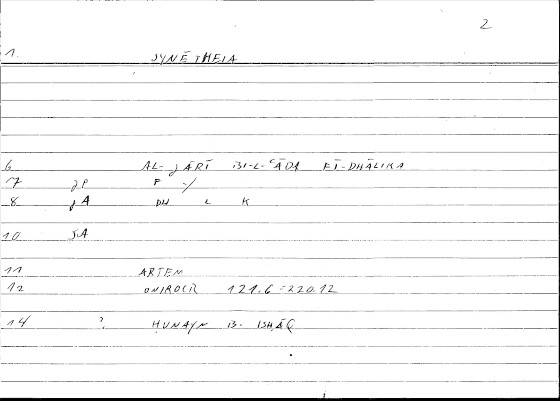 2
1. SYNĒTHEIA
6 AL-JĀRĪ BI-L-ʿĀDA FĪ-DHĀLIKA
7 JR F -Y
8 JA DH L K
10 JA
11 ARTEM
12 ONIROCR 121.6 = 220.12
14 ? HUNAYN B. ISḤĀQ